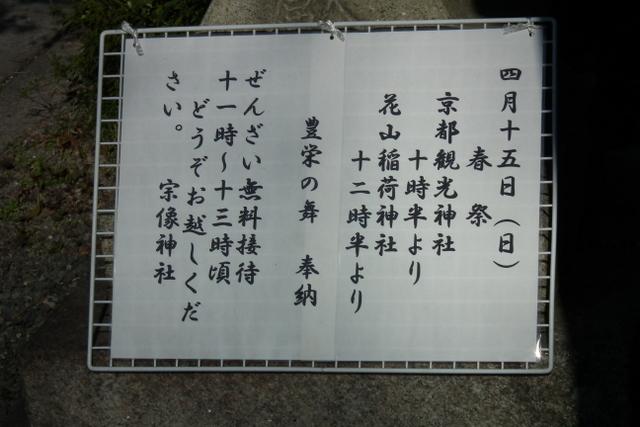 四月十五日(日)
春祭
京都観光神社
十時半より
花山稲荷神社
十二時半より
豊栄の舞 奉納
ぜんざい無料接待
十一時~十三時頃
どうぞお越しくだ
さい。 宗像神社